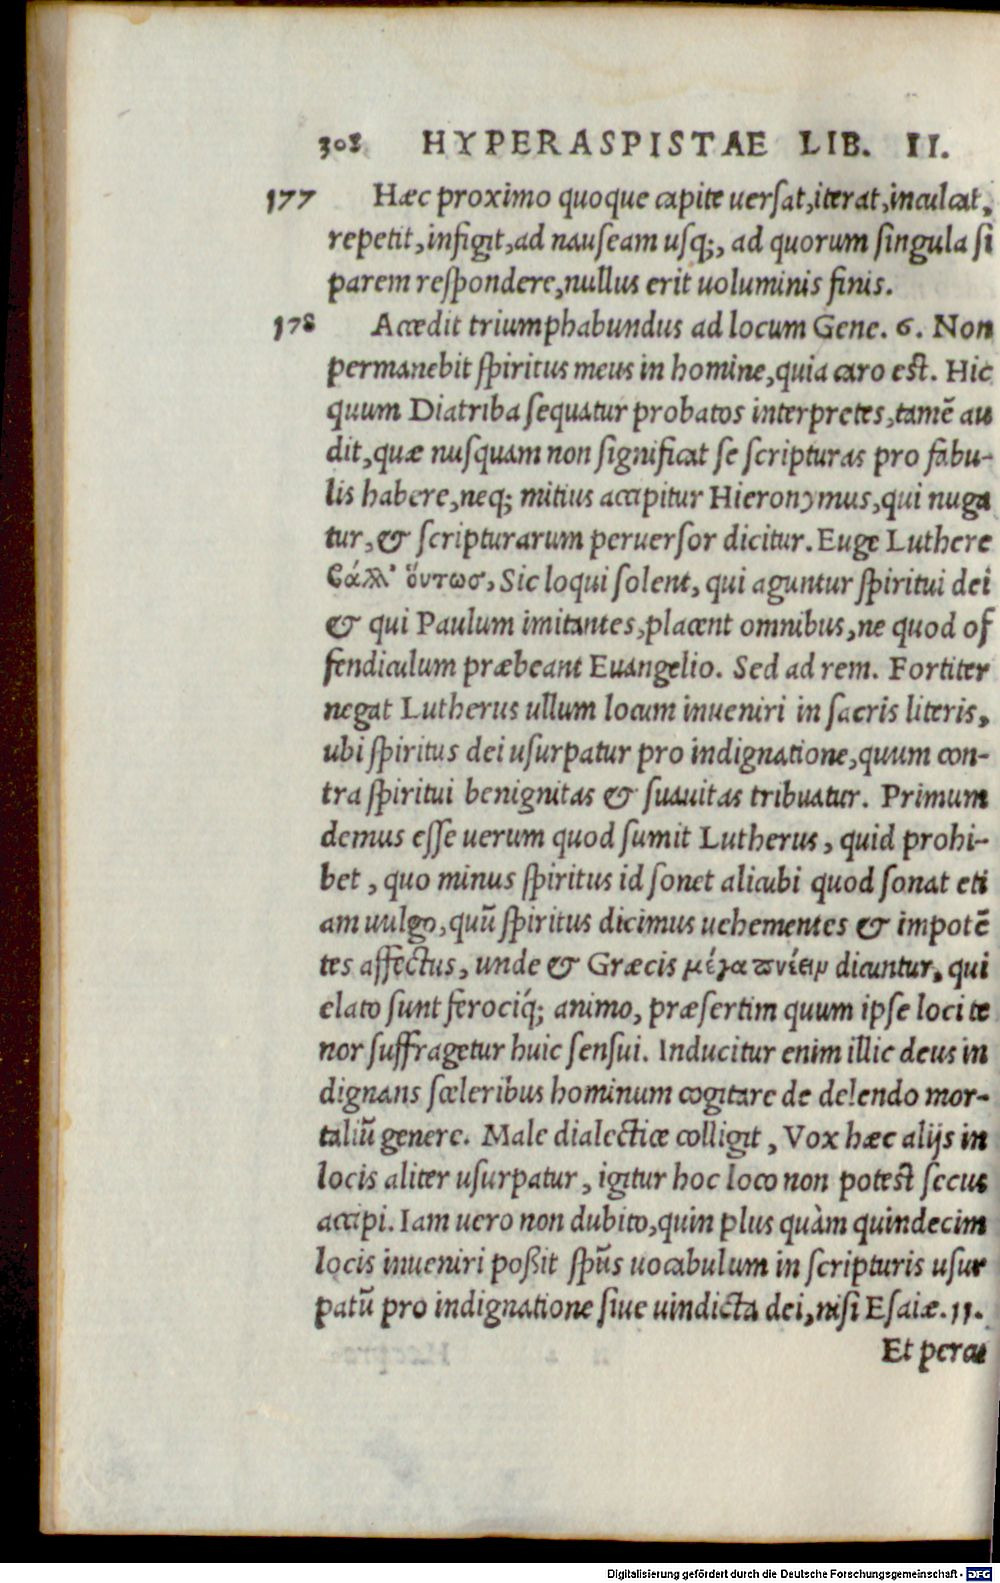 308 HYPERASPISTAE LIB. II.
177 Hæc proximo quoque capite uersat,iterat,inculcat,
repetit,infigit,ad nauseam usq;, ad quorum singula si
parem respondere,nullus erit uoluminis finis.
178 Accedit triumphabundus ad locum Gene. 6. Non
permanebit spiritus meus in homine,quia caro est. Hic
quum Diatriba sequatur probatos interpretes,tamē au
dit,quæ nusquam non significat se scripturas pro fabu-
lis habere,neq; mitius accipitur Hieronymus,qui nuga
tur,& scripturarum peruersor dicitur. Euge Luthere
βάλλ' ὄντωσ, Sic loqui solent, qui aguntur spiritui dei
& qui Paulum imitantes,placent omnibus,ne quod of
fendiculum præbeant Euangelio. Sed ad rem. Fortiter
negat Lutherus ullum locum inueniri in sacris literis,
ubi spiritus dei usurpatur pro indignatione,quum con-
tra spiritui benignitas & suauitas tribuatur. Primum
demus esse uerum quod sumit Lutherus, quid prohi-
bet, quo minus spiritus id sonet alicubi quod sonat eti
am uulgo,quū spiritus dicimus uehementes & impotē
tes affectus, unde & Græcis μέγα πνέειν dicuntur, qui
elato sunt ferociq́; animo, præsertim quum ipse loci te
nor suffragetur huic sensui. Inducitur enim illic deus in
dignans sceleribus hominum cogitare de delendo mor-
taliū genere. Male dialectice colligit, Vox hæc alijs in
locis aliter usurpatur, igitur hoc loco non potest secus
accipi. Iam uero non dubito,quin plus quàm quindecim
locis inueniri poßit spūs uocabulum in scripturis usur
patū pro indignatione siue uindicta dei,nisi Esaiæ.11.
Et percu
Digitalisierung gefördert durch die Deutsche Forschungsgemeinschaft - DFG